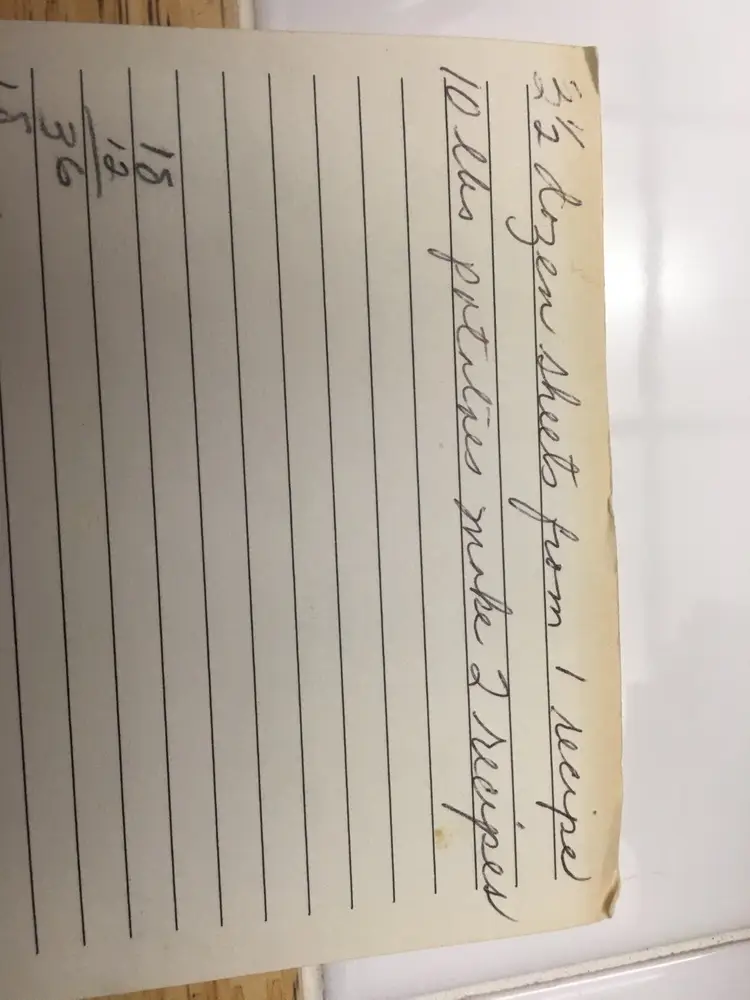 2½ dozen sheets from 1 recipe
10 lbs potatoes make 2 recipes
18
12
36
18